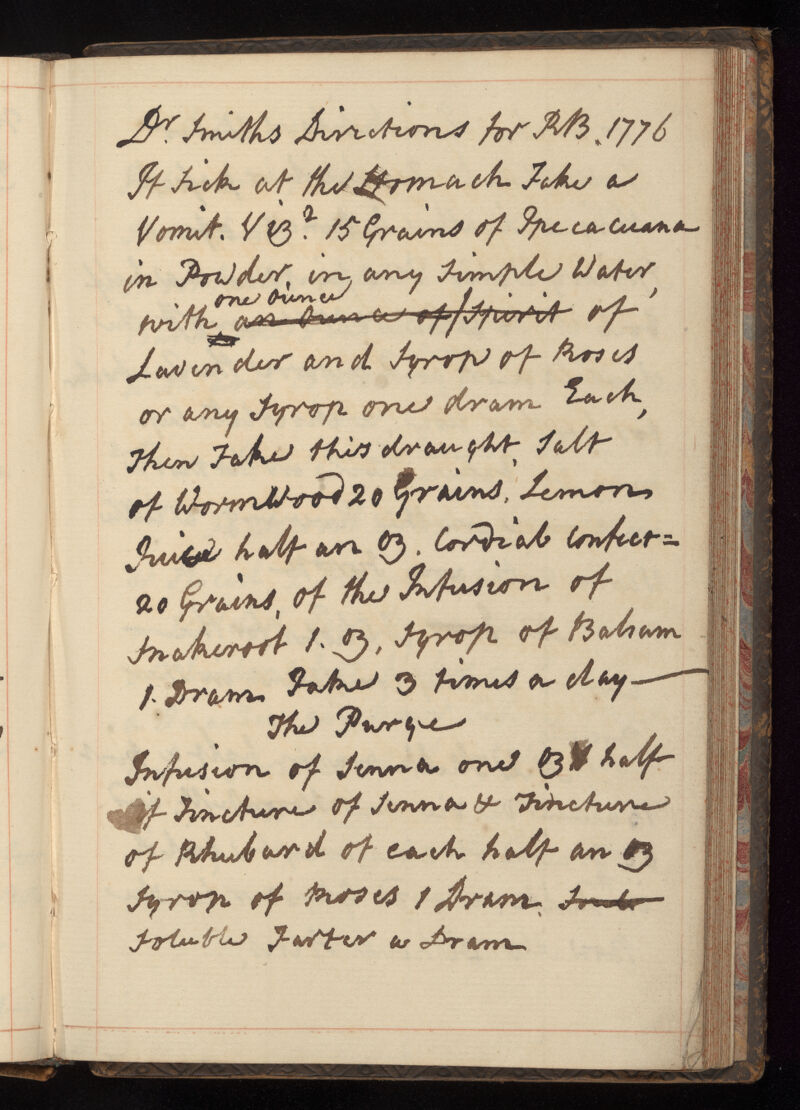 Dr. Smiths Directions for RB. 1776
If sick at the Stomach Take a
Vomit. Viz. 15 Grains of Ipecacuana
in Powder, in any Simple Water,
one Ounce
with an Ounce of Spirit of
Lavender and Syrop of Roses
or any Syrop one dram Each,
Then Take this draught, Salt
of WormWood 20 Grains, Lemon
Juice half an oz. Cordial Confect=
20 Grains, of the Infusion of
Snakeroot 1. oz, Syrop of Balsam
1. Dram Take 3 times a day—
The Purge
Infusion of Senna one oz & half
of Tincture of Senna & Tincture
of Rhubard of each half an oz
Syrop of Roses 1 Dram.
Soluble Tarter a Dram